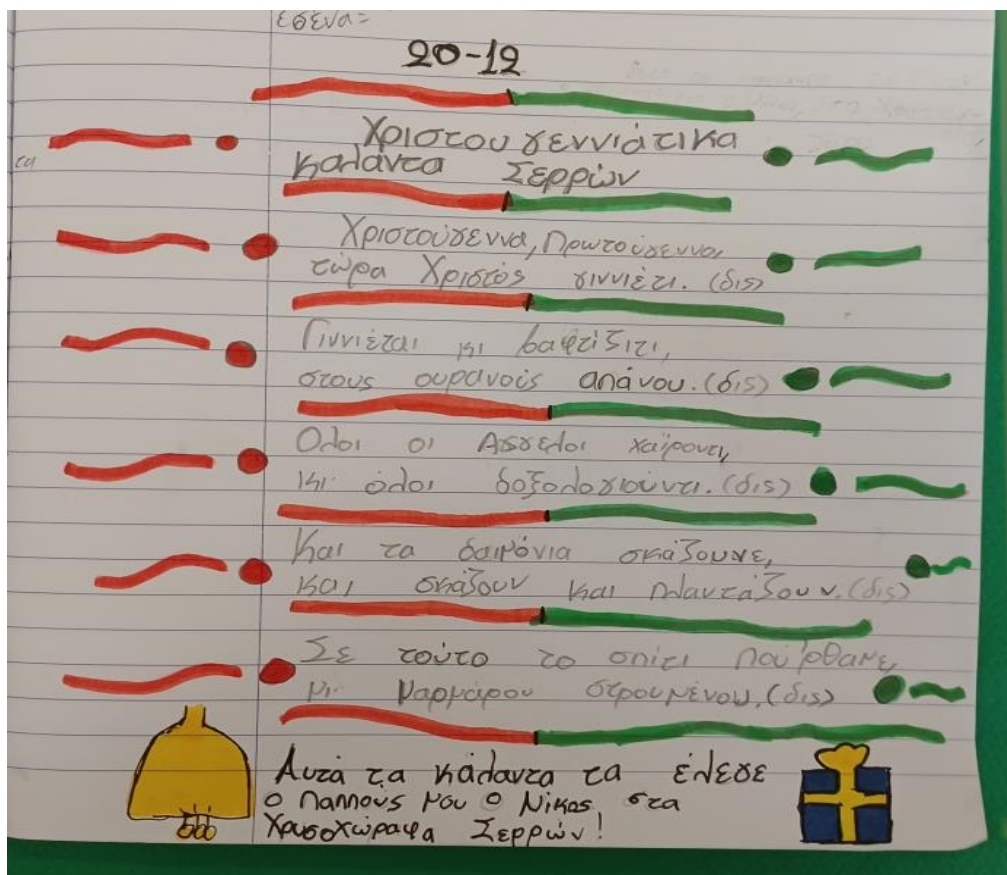 εσενα=
20-12
Χριστουγεννιάτικα
Καλάντα Σερρών
Χριστούγεννα, Πρωτούγεννα,
τώρα Χριστός γιννιέτι. (δις)
Γιννιέται κι βαφτίζιτι,
στους ουρανούς απάνου. (δις)
Όλοι οι Άγγελοι χαίρουντι,
κι όλοι δοξολογιούντι. (δις)
Και τα δαιμόνια σκάζουνε,
και σκάζουν και πλαντάζουν. (δις)
Σε τούτο το σπίτι που'ρθαμε,
μι μαρμάρου στρουμένου. (δις)
Αυτά τα κάλαντα τα έλεγε
ο παππούς μου ο Νίκος στα
Χρυσοχώραφα Σερρών!